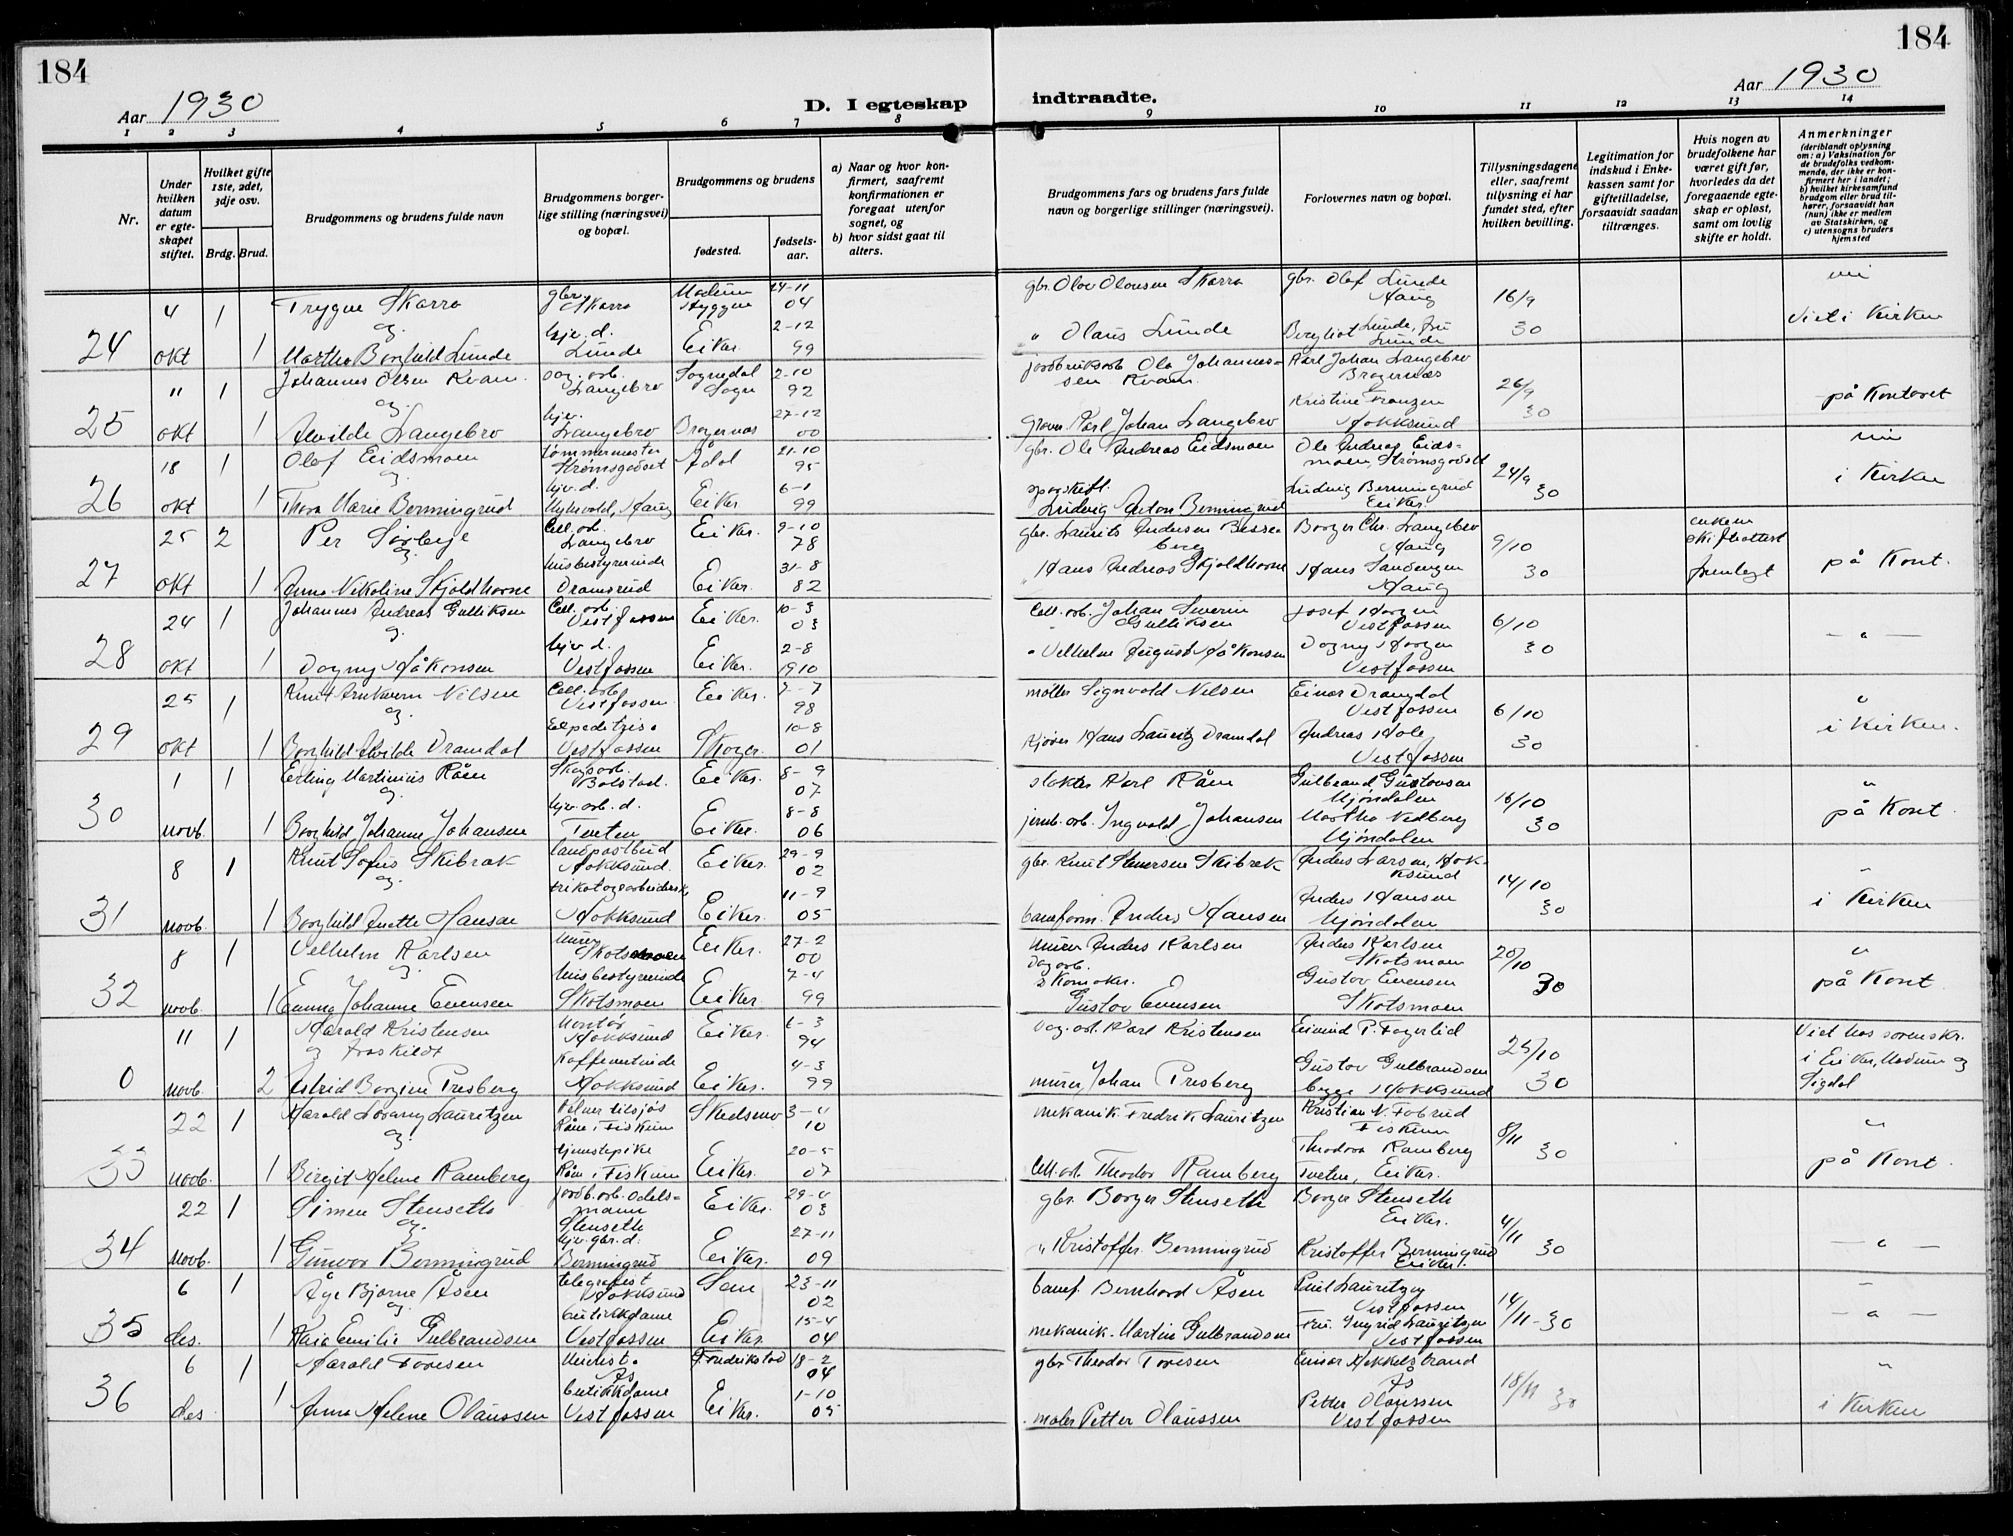 184
184
Aar 1930
D. I egteskap
indtraadte.
Aar 1930
1 2 3 4 5 6 7 8
9 10 11 12 13 14
Nr.
Under hvilken datum er egteskapet stiftet.
Hvilket gifte 1ste, 2det, 3dje osv.
Brdg. Brud.
Brudgommens og brudens fulde navn
Brudgommens borgerlige stilling (næringsvei) og bopæl.
Brudgommens og brudens
fødested.
fødselsaar.
a) Naar og hvor konfirmert, saafremt konfirmationen er foregaat utenfor sognet, og
b) hvor sidst gaat til alters.
Brudgommens fars og brudens fars fulde navn og borgerlige stillinger (næringsvei).
Forlovernes navn og bopæl.
Tillysningsdagene eller, saafremt tillysning ei har fundet sted, efter hvilken bevilling.
Legitimation for indskud i Enkekassen samt for giftetilladelse, forsaavidt saadan tiltrænges.
Hvis nogen av brudefolkene har været gift før, hvorledes da det foregaaende egteskap er opløst, samt om lovlig skifte er holdt.
Anmerkninger (deriblandt oplysning om: a) Vaksination for de brudefolks vedkommende, der ikke er konfirmert her i landet; b) hvilket kirkesamfund brudgom eller brud tilhører, forsaavidt han (hun) ikke er medlem av Statskirken, og c) utensogns bruders hjemsted
24 4 okt 1 Trygve Skarra gbr. Skarra Modum 24-11 04 gbr. Olav Olausen Skarra gbr. Olaf Lunde Haug 16/9 30
og 1 Martha Borghild Lunde hjv. d. Lunde Eiker 2-12 99 " Olaus Lunde Borghot Lunde, fru Lunde Viet i Kirken
25 11 okt 1 Johannes Olsen Kvam dag. arb. Langebro Sogndal Sogn 2-10 92 jordbruksarb. Ola Johannessen Kvam Karl Johan Langebro Bragernes 26/9 30
og 1 Alvilde Langebro hjv. Langebro Bragernes 27-12 00 Karl Johan Langebro Kristine Franzen Hokksund på Kontoret
26 18 okt 1 Olaf Eidsmoen tømmermester Strømsgodset Ådal 21-10 95 gbr. Ole Andreas Eidsmoen Ole Andreas Eidsmoen, Strømsgodset 24/9 30
og 1 Thora Marie Bermingrud hjv. d. Myhrvold, Haug Eiker 6-1 99 Ludvig Anton Bermingrud Ludvig Bermingrud Eiker i Kirken
27 25 okt 2 Per Sørbye Cell. arb. Langebro Eiker. 9-10 78 gbr. Laurits Andersen Besseberg Borger Chr. Langebro Haug 9/10 30 enkem skifteattest fremlagt
og 1 Anna Nikoline Skjoldhorne husbestyrerinde Dramsrud Eiker. 31-8 82 " Hans Andreas Skjoldhorne Hans Sandengen Haug på Kont.
28 24 okt 1 Johannes Andreas Gulliksen Cell. arb. Vestfossen Eiker. 10-3 03 Cell. arb. Johan Severin Gulliksen Josef Horgen Vestfossen 6/10 30
og 1 Dagny Håkonsen hjv d. Vestfossen Eiker. 2-8 1910 " Vilhelm August Håkonsen Dagny Horgen Vestfossen — " —
29 25 okt 1 Knut Nilsen Cell. arb. Vestfossen Eiker. 7-7 98 møller Signvald Nilsen Einar Dramdal Vestfossen 6/10 30
og 1 Borghild Alvilde Dramdal Vestfossen Skoger. 10-8 01 kjører Hans Lauritz Dramdal Andreas Hole Vestfossen " i Kirken.
30 1 novb. 1 Erling Martinius Råen Skogsarb. Bolstad. Eiker. 8-9 07 slakter Karl Råen Gulbrand Gustavsen Mjøndalen 16/10 30
og 1 Borghild Johanne Johansen hjv. arb. d. Tveten Eiker. 8-8 06 jernb. arb. Ingvald Johansen Martha Vedberg Mjøndalen " på Kont.
31 8 novb. 1 Knut Sofus Skibrek landpostbud Hokksund Eiker. 29-9 02 gbr. Knut Steversen Skibrek Anders Larsen, Hokksund 14/10 30
og 1 Borghild Anette Hansen trikotagearbeiderske Hokksund Eiker. 11-9 05 baneform. Anders Hansen Anders Hansen Mjøndalen " i Kirken
32 8 novb. 1 Vilhelm Karlsen murer Skotsmoen Eiker. 27-2 00 murer Anders Karlsen Anders Karlsen Skotsmoen 20/10 30
og 1 Emma Johanne Evensen husbestyrerinde Skotsmoen Eiker 7-4 99 dag arb. skomaker. Gustav Evensen Gustav Evensen Skotsmoen " på Kont
0 11 novb. 1 Harald Kristensen Montør Hokksund Eiker. 6-3 94 Dag. arb. Karl Kristensen Eivind P. Fagerlid 25/10 30
og fraskildt 2 Astrid Borgine Presberg Kaffevertinde Hokksund Eiker. 4-3 99 murer Johan Presberg Gustav Gulbrandsen bygge Hokksund Viet hos sorenskr. i Eiker, Modum og Sigdal
33 22 novb. 1 Harald Lauritzen Råen i Fiskum Skedsmo 3-11 10 mekanik. Fredrik Lauritzen Kristian N. Fosrud Fiskum 8/11 30
og 1 Birgit Helene Ramberg tjenestepike Råen i Fiskum Eiker. 20-5 07 Cell. arb. Theodor Ramberg Theodora Ramberg Tveten, Eiker. " på Kont.
34 22 novb. 1 Simen Stenseth jordb. arb. odelsmann Stenseth Eiker. 29-4 03 gbr. Borger Stenseth Borger Stenseth Eiker. 4/11 30
og 1 Gunvor Bermingrud hjv. gbr. d. Bermingrud Eiker. 27-11 09 " Kristoffer Bermingrud Kristoffer Bermingrud Eiker. — " —
35 6 des. 1 Åge Bjarne Åsen telegrafist Hokksund Sem 23-11 02 banef. Bernhard Åsen Emil Lauritzen Vestfossen 14/11-30
og 1 Kaia Emilie Gulbrandsen butikkdame Vestfossen Eiker. 15-4 04 mekanik. Martin Gulbrandsen Fru Ingrid Lauritzen Vestfossen — " —
36 6 des 1 Harald Toresen Ås Fredrikstad 18-2 04 gbr Theodor Toresen Einar Hekkelstrand Ås 18/11 30
1 Anna Helene Olaussen butikkdame Vestfossen Eiker. 1-10 05 maler Petter Olaussen Petter Olaussen Vestfossen " i Kirken